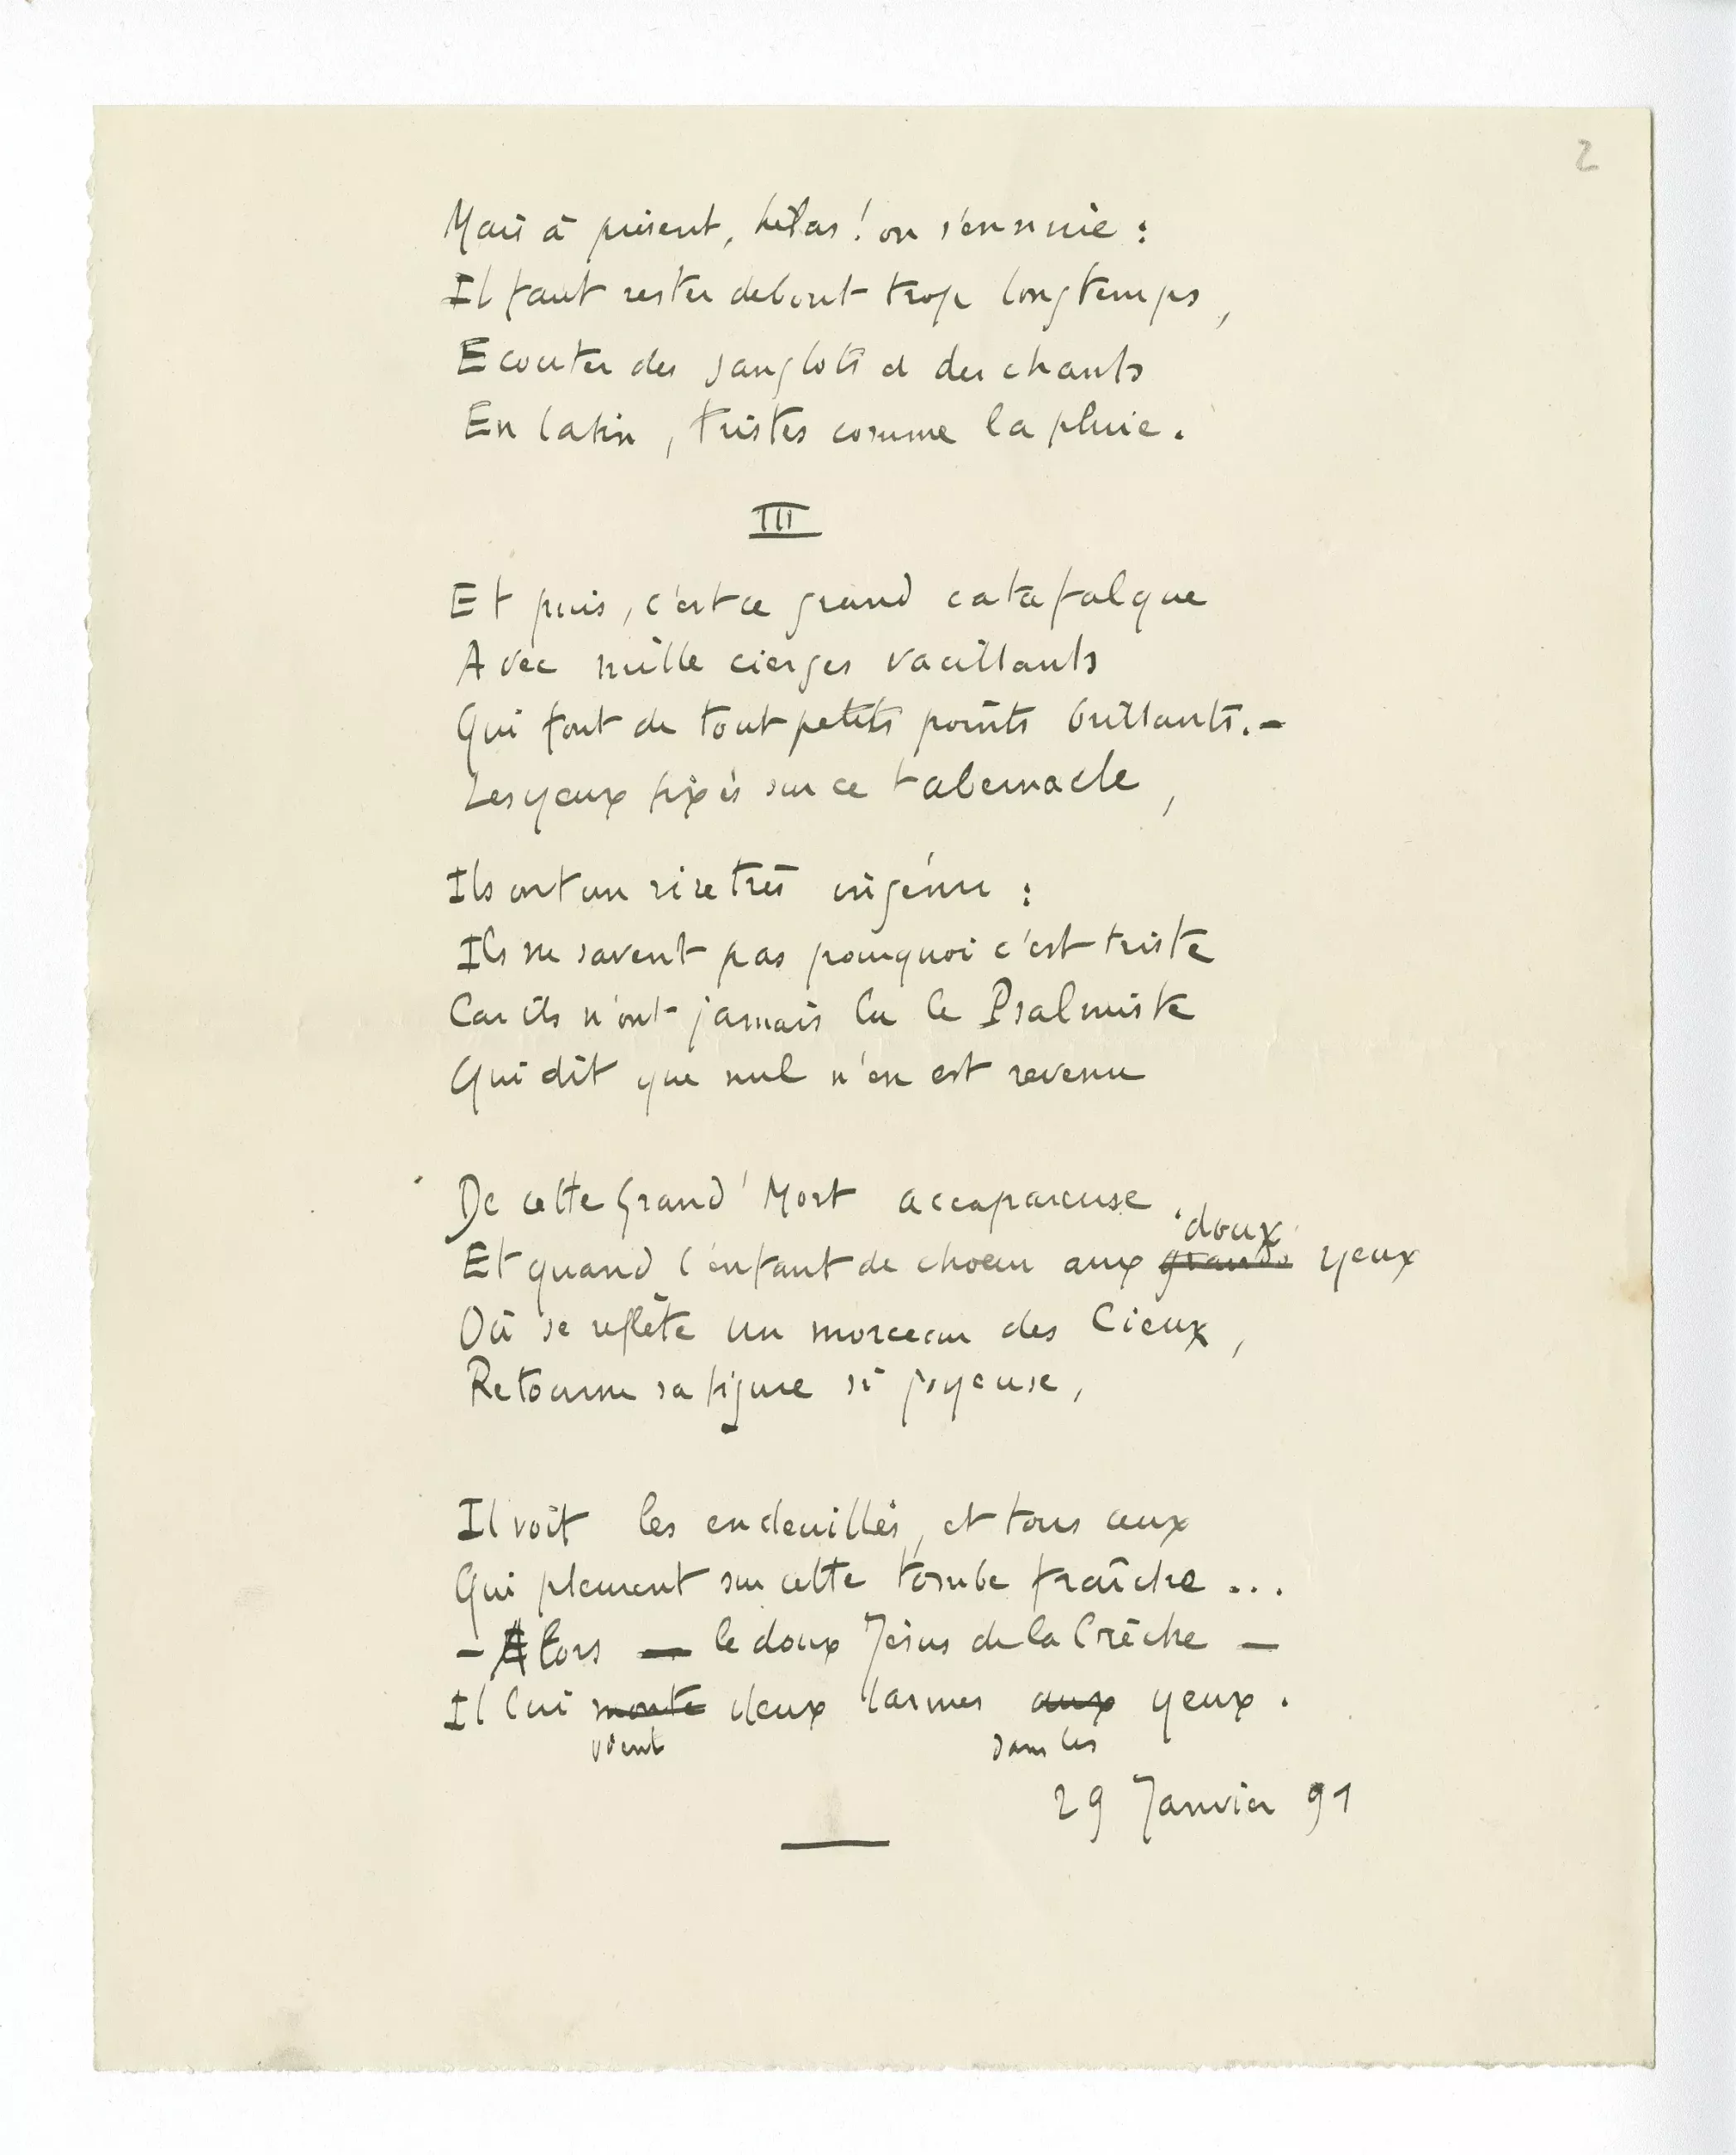 2
Mais à présent, hélas ! on s'ennuie :
Il faut rester debout trop longtemps,
Ecouter des sanglots et des chants
En latin, tristes comme la pluie.
III
Et puis, c'est ce grand catafalque
Avec mille cierges vacillants
Qui font de tout petits points brillants. –
Les yeux fixés sur ce tabernacle,
Ils ont un rire très ingénu :
Ils ne savent pas pourquoi c'est triste
Car ils n'ont jamais lu le Psalmiste
Qui dit que nul n'en est revenu
De cette Grand' Mort accapareuse.
doux
Et quand l'enfant de choeur aux grands yeux
Où se reflète un morceau des Cieux,
Retourne sa figure si joyeuse,
Il voit les endeuillés, et tous ceux
Qui pleurent sur cette tombe fraîche ...
– Alors — le doux Jésus de la Crèche —
Il lui monte deux larmes aux yeux.
vient dans les
29 Janvier 91